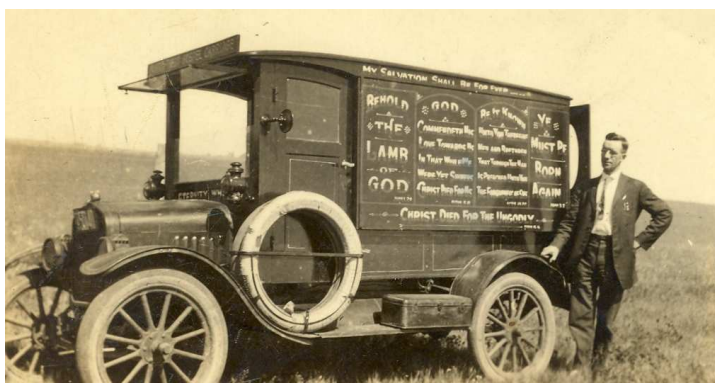 MY SALVATION SHALL BE FOR EVER
BEHOLD
THE
LAMB
OF
GOD
GOD
COMMENDETH HIS
LOVE TOWARDS US
IN THAT WHILE WE
WERE YET SINNERS
CHRIST DIED FOR US
BE IT KNOWN
UNTO YOU THEREFORE
MEN AND BRETHREN
THAT THROUGH THIS MAN
IS PREACHED UNTO YOU
THE FORGIVENESS OF SINS
YE
MUST BE
BORN
AGAIN
CHRIST DIED FOR THE UNGODLY
ETERNITY